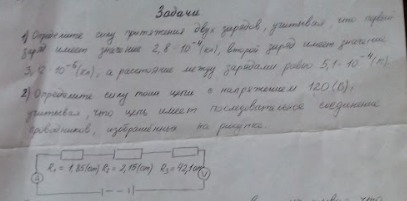 Задачи
1) Определите силу притяжения двух зарядов, учитывая, что первый
заряд имеет значение 2,8 · 10⁻⁴ (кл), второй заряд имеет значение
10⁻⁶ (кл), а расстояние между зарядами равно 5,1 · 10⁻⁴ (м)
2) Определите силу тока цепи с напряжением 120 (В),
учитывая, что цепь имеет последовательное соединение
проводников, изображённых на рисунке.
R₁ = 1,85 (ом) R₂ = 2,15 (ом) R₃ = 42,1 ом
A
V